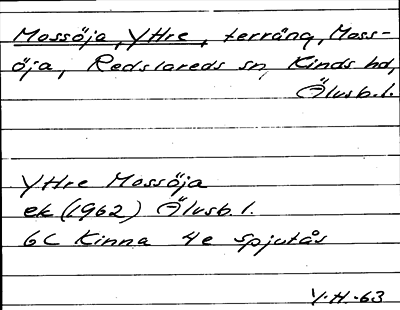 Mossöja, Yttre, terräng, Moss-
öja, Redslareds sn, Kinds hd,
Älvsb.l.
Yttre Mossöja
ek (1962) Älvsb.l.
6C Kinna 4e Spjutås
Y.H.-63